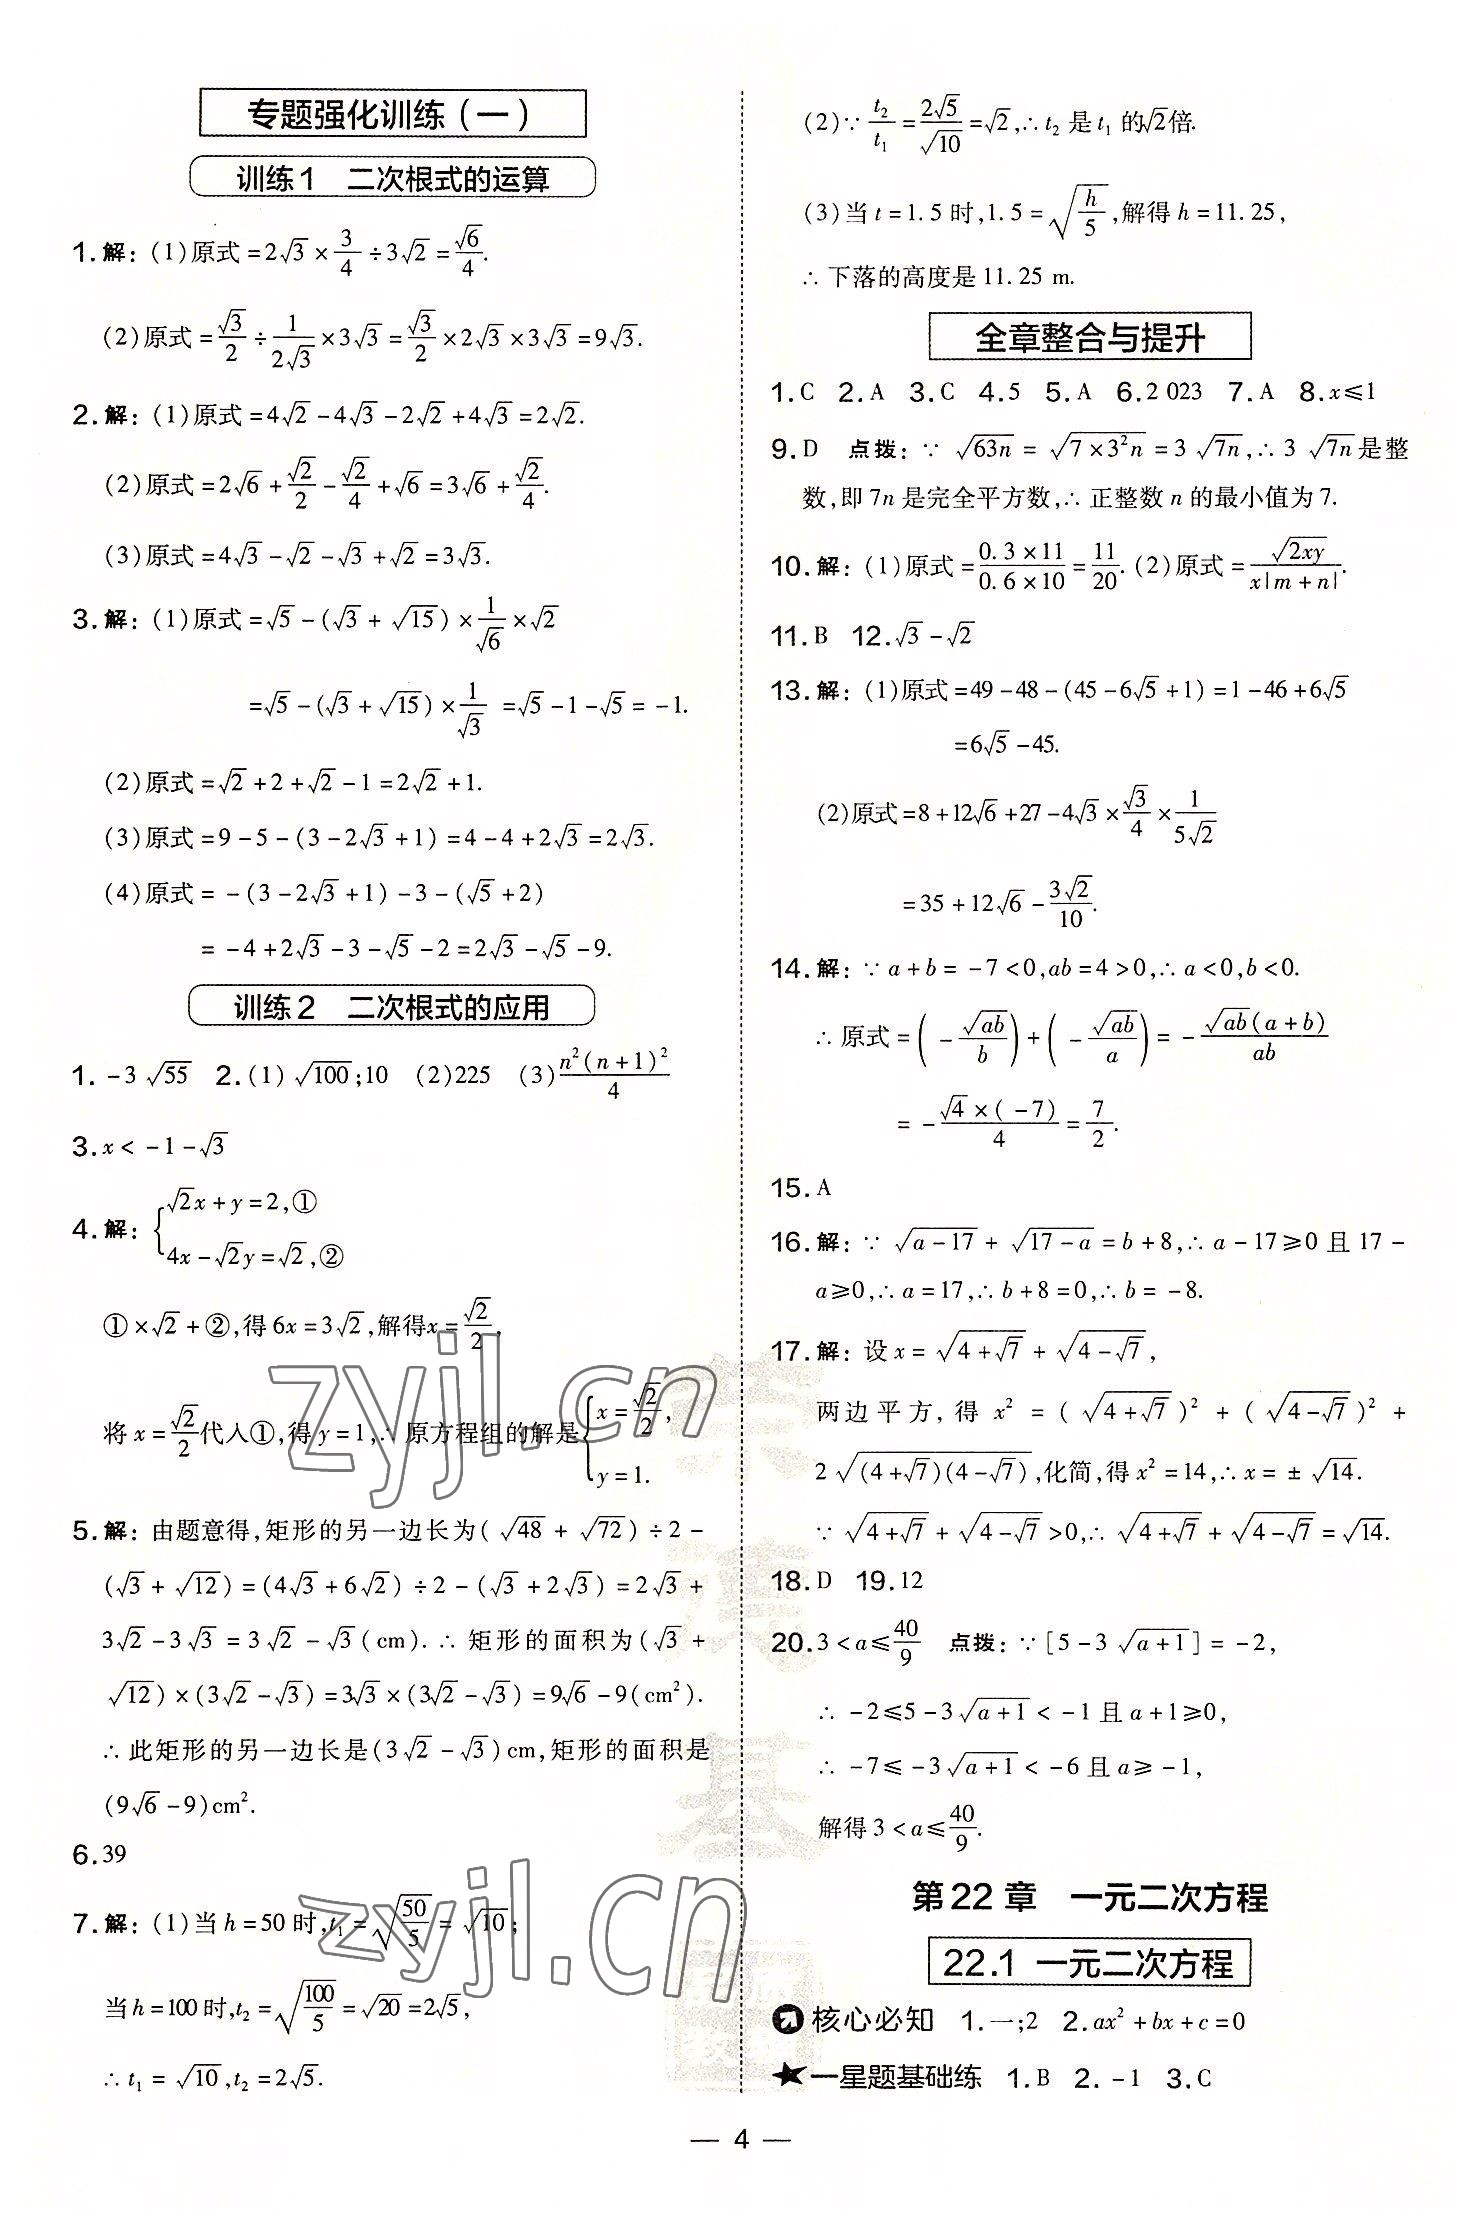 专题强化训练(一)
训练1 二次根式的运算
1.解:(1)原式=2√3×3/4÷3√2=√6/4.
(2)原式=√3/2÷1/(2√3)×3√3=√3/2×2√3×3√3=9√3.
2.解:(1)原式=4√2-4√3-2√2+4√3=2√2.
(2)原式=2√6+√2/2-√2/4+√6=3√6+√2/4.
(3)原式=4√3-√2-√3+√2=3√3.
3.解:(1)原式=√5-(√3+√15)×1/√6×√2
=√5-(√3+√15)×1/√3=√5-1-√5=-1.
(2)原式=√2+2+√2-1=2√2+1.
(3)原式=9-5-(3-2√3+1)=4-4+2√3=2√3.
(4)原式=-(3-2√3+1)-3-(√5+2)
=-4+2√3-3-√5-2=2√3-√5-9.
训练2 二次根式的应用
1.-3√55 2.(1)√100;10 (2)225 (3)n²(n+1)²/4
3.x<-1-√3
4.解:{√2x+y=2,①
4x-√2y=√2,②
①×√2+②,得6x=3√2,解得x=√2/2,
将x=√2/2代入①,得y=1,∴原方程组的解是{x=√2/2,
y=1.
5.解:由题意得,矩形的另一边长为(√48+√72)÷2-
(√3+√12)=(4√3+6√2)÷2-(√3+2√3)=2√3+
3√2-3√3=3√2-√3(cm).∴矩形的面积为(√3+
√12)×(3√2-√3)=3√3×(3√2-√3)=9√6-9(cm²).
∴此矩形的另一边长是(3√2-√3)cm,矩形的面积是
(9√6-9)cm².
6.39
7.解:(1)当h=50时,t₁=√(50/5)=√10;
当h=100时,t₂=√(100/5)=√20=2√5,
∴t₁=√10,t₂=2√5.
(2)∵t₂/t₁=2√5/√10=√2,∴t₂是t₁的√2倍.
(3)当t=1.5时,1.5=√(h/5),解得h=11.25,
∴下落的高度是11.25 m.
全章整合与提升
1.C 2.A 3.C 4.5 5.A 6.2 023 7.A 8.x≤1
9.D 点拨:∵√(63n)=√(7×3²n)=3√(7n),∴3√(7n)是整
数,即7n是完全平方数,∴正整数n的最小值为7.
10.解:(1)原式=(0.3×11)/(0.6×10)=11/20.(2)原式=√(2xy)/(x|m+n|).
11.B 12.√3-√2
13.解:(1)原式=49-48-(45-6√5+1)=1-46+6√5
=6√5-45.
(2)原式=8+12√6+27-4√3×√3/4×1/(5√2)
=35+12√6-3√2/10.
14.解:∵a+b=-7<0,ab=4>0,∴a<0,b<0.
∴原式=(-√(ab)/b)+(-√(ab)/a)=-√(ab)(a+b)/(ab)
=-√4×(-7)/4=7/2.
15.A
16.解:∵√(a-17)+√(17-a)=b+8,∴a-17≥0且17-
a≥0,∴a=17,∴b+8=0,∴b=-8.
17.解:设x=√(4+√7)+√(4-√7),
两边平方,得x²=(√(4+√7))²+(√(4-√7))²+
2√((4+√7)(4-√7)),化简,得x²=14,∴x=±√14.
∵√(4+√7)+√(4-√7)>0,∴√(4+√7)+√(4-√7)=√14.
18.D 19.12
20.3<a≤40/9 点拨:∵[5-3√(a+1)]=-2,
∴-2≤5-3√(a+1)<-1且a+1≥0,
∴-7≤-3√(a+1)<-6且a≥-1,
解得3<a≤40/9.
第22章 一元二次方程
22.1 一元二次方程
核心必知 1.一;2 2.ax²+bx+c=0
一星题基础练 1.B 2.-1 3.C
— 4 —
zyjl.cn
zyjl.cn